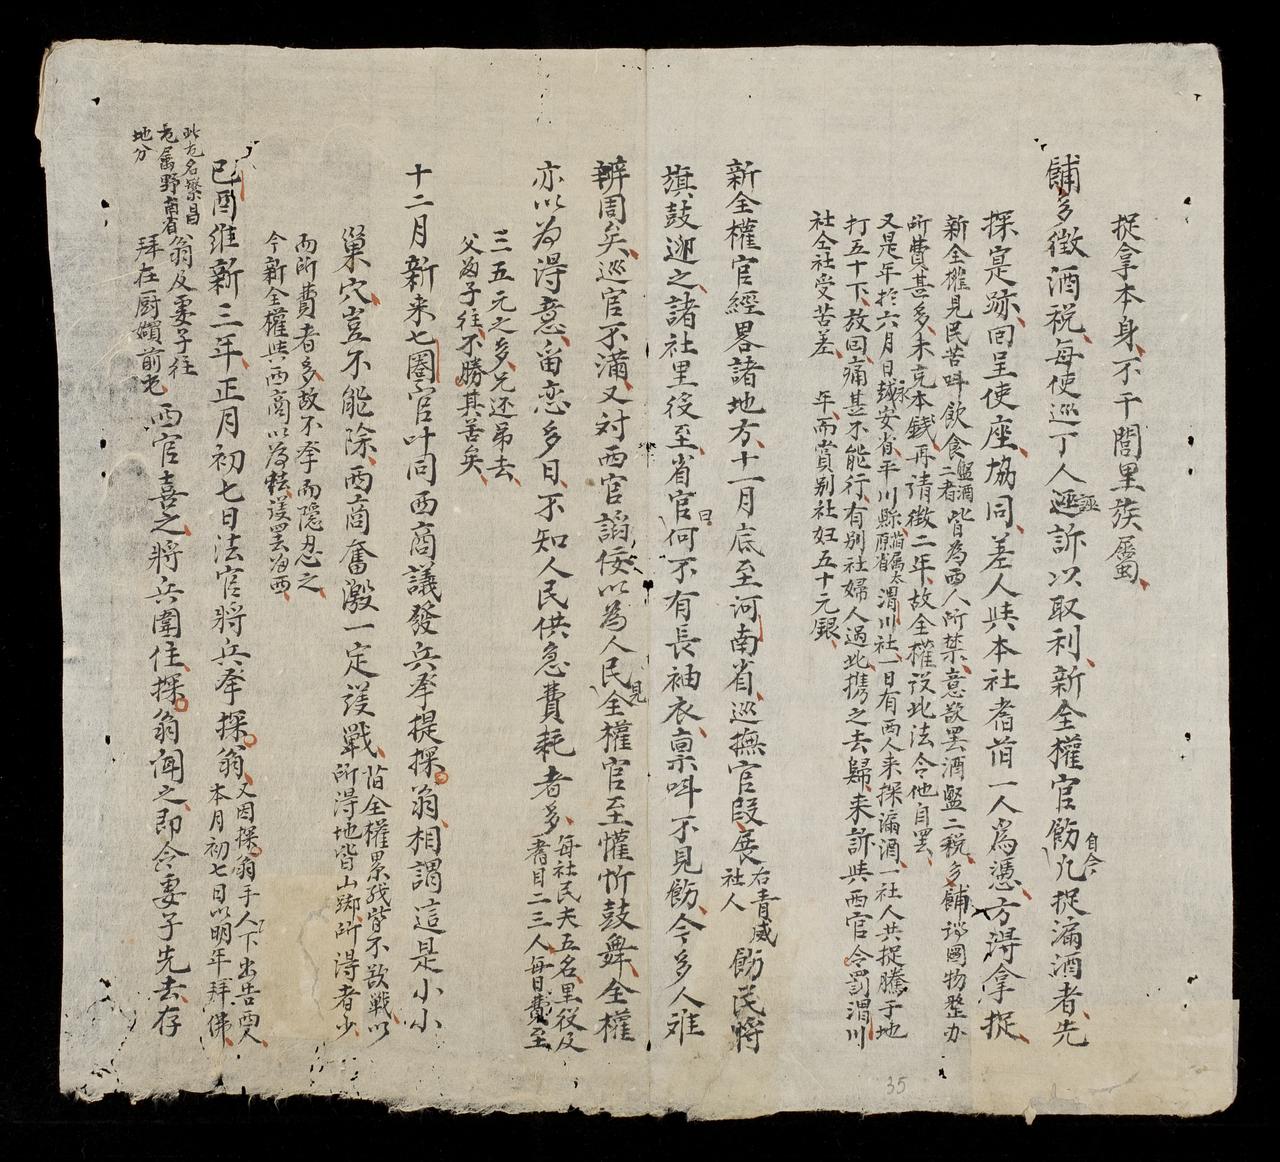 捉拿本身、不干閭里族属、
餔多徴酒税、每使巡丁人誣訴以取利、新全權官飭自今凡捉漏酒者、先
探寔跡、回呈使座、協同差人与本社耆首一人為憑、方淂拿捉、
新全權見民苦叫飲食塩酒二者皆為西人所禁、意欲罢酒塩二税、多餔諸圆物整办
所費甚多、未克本銭、再請徴二年、故全權設此法令他自罢、
又是年於六月日永安省平川縣渭川社、一日有西人来探漏酒、一社人共捉騰于地
打五十下、放回痛甚不能行、有別社婦人过此携之去、歸来訴与西官、令罰渭川
社仝社受苦差　年、而賞別社妇五十元銀、
新全權官經畧諸地方、十一月底至河南省、巡撫官段展右青威社人飭民將
旗鼓迎之、諸社里役至、省官曰何不有長袖衣、禀叫不見飭、今多人难
辨周矣、巡官不滿、又对西官謟佞以為人民見全權官至懽忻鼓舞、全權
亦以為淂意、畄恋多日、不知人民供急費耗者多、每社民夫五名、里役及耆目二三人、每日費至
三五元之多、兄还弟去
父为子往、不勝其苦矣、
十二月新来七圈官叶同西商議發兵拿提探翁、相謂這是小小
巢穴、豈不能除、西商奮激一定议戰、前全權累残皆不欲戰、以所淂地皆山鄉、所淂者少、
而所費者多、故不拿而隠忍之
今新全權与西商以为轻、议罢海西、
已酉維新三年、正月初七日法官將兵拿探翁、又因探翁手人下出告賈人、本月初七日以明年拜佛、
此屯名繁昌
屯属野南省
地分
翁及妻子往
拜在厨嬪前屯
西官喜之、將兵圍住、探翁闻之、即令妻子先去、存
35